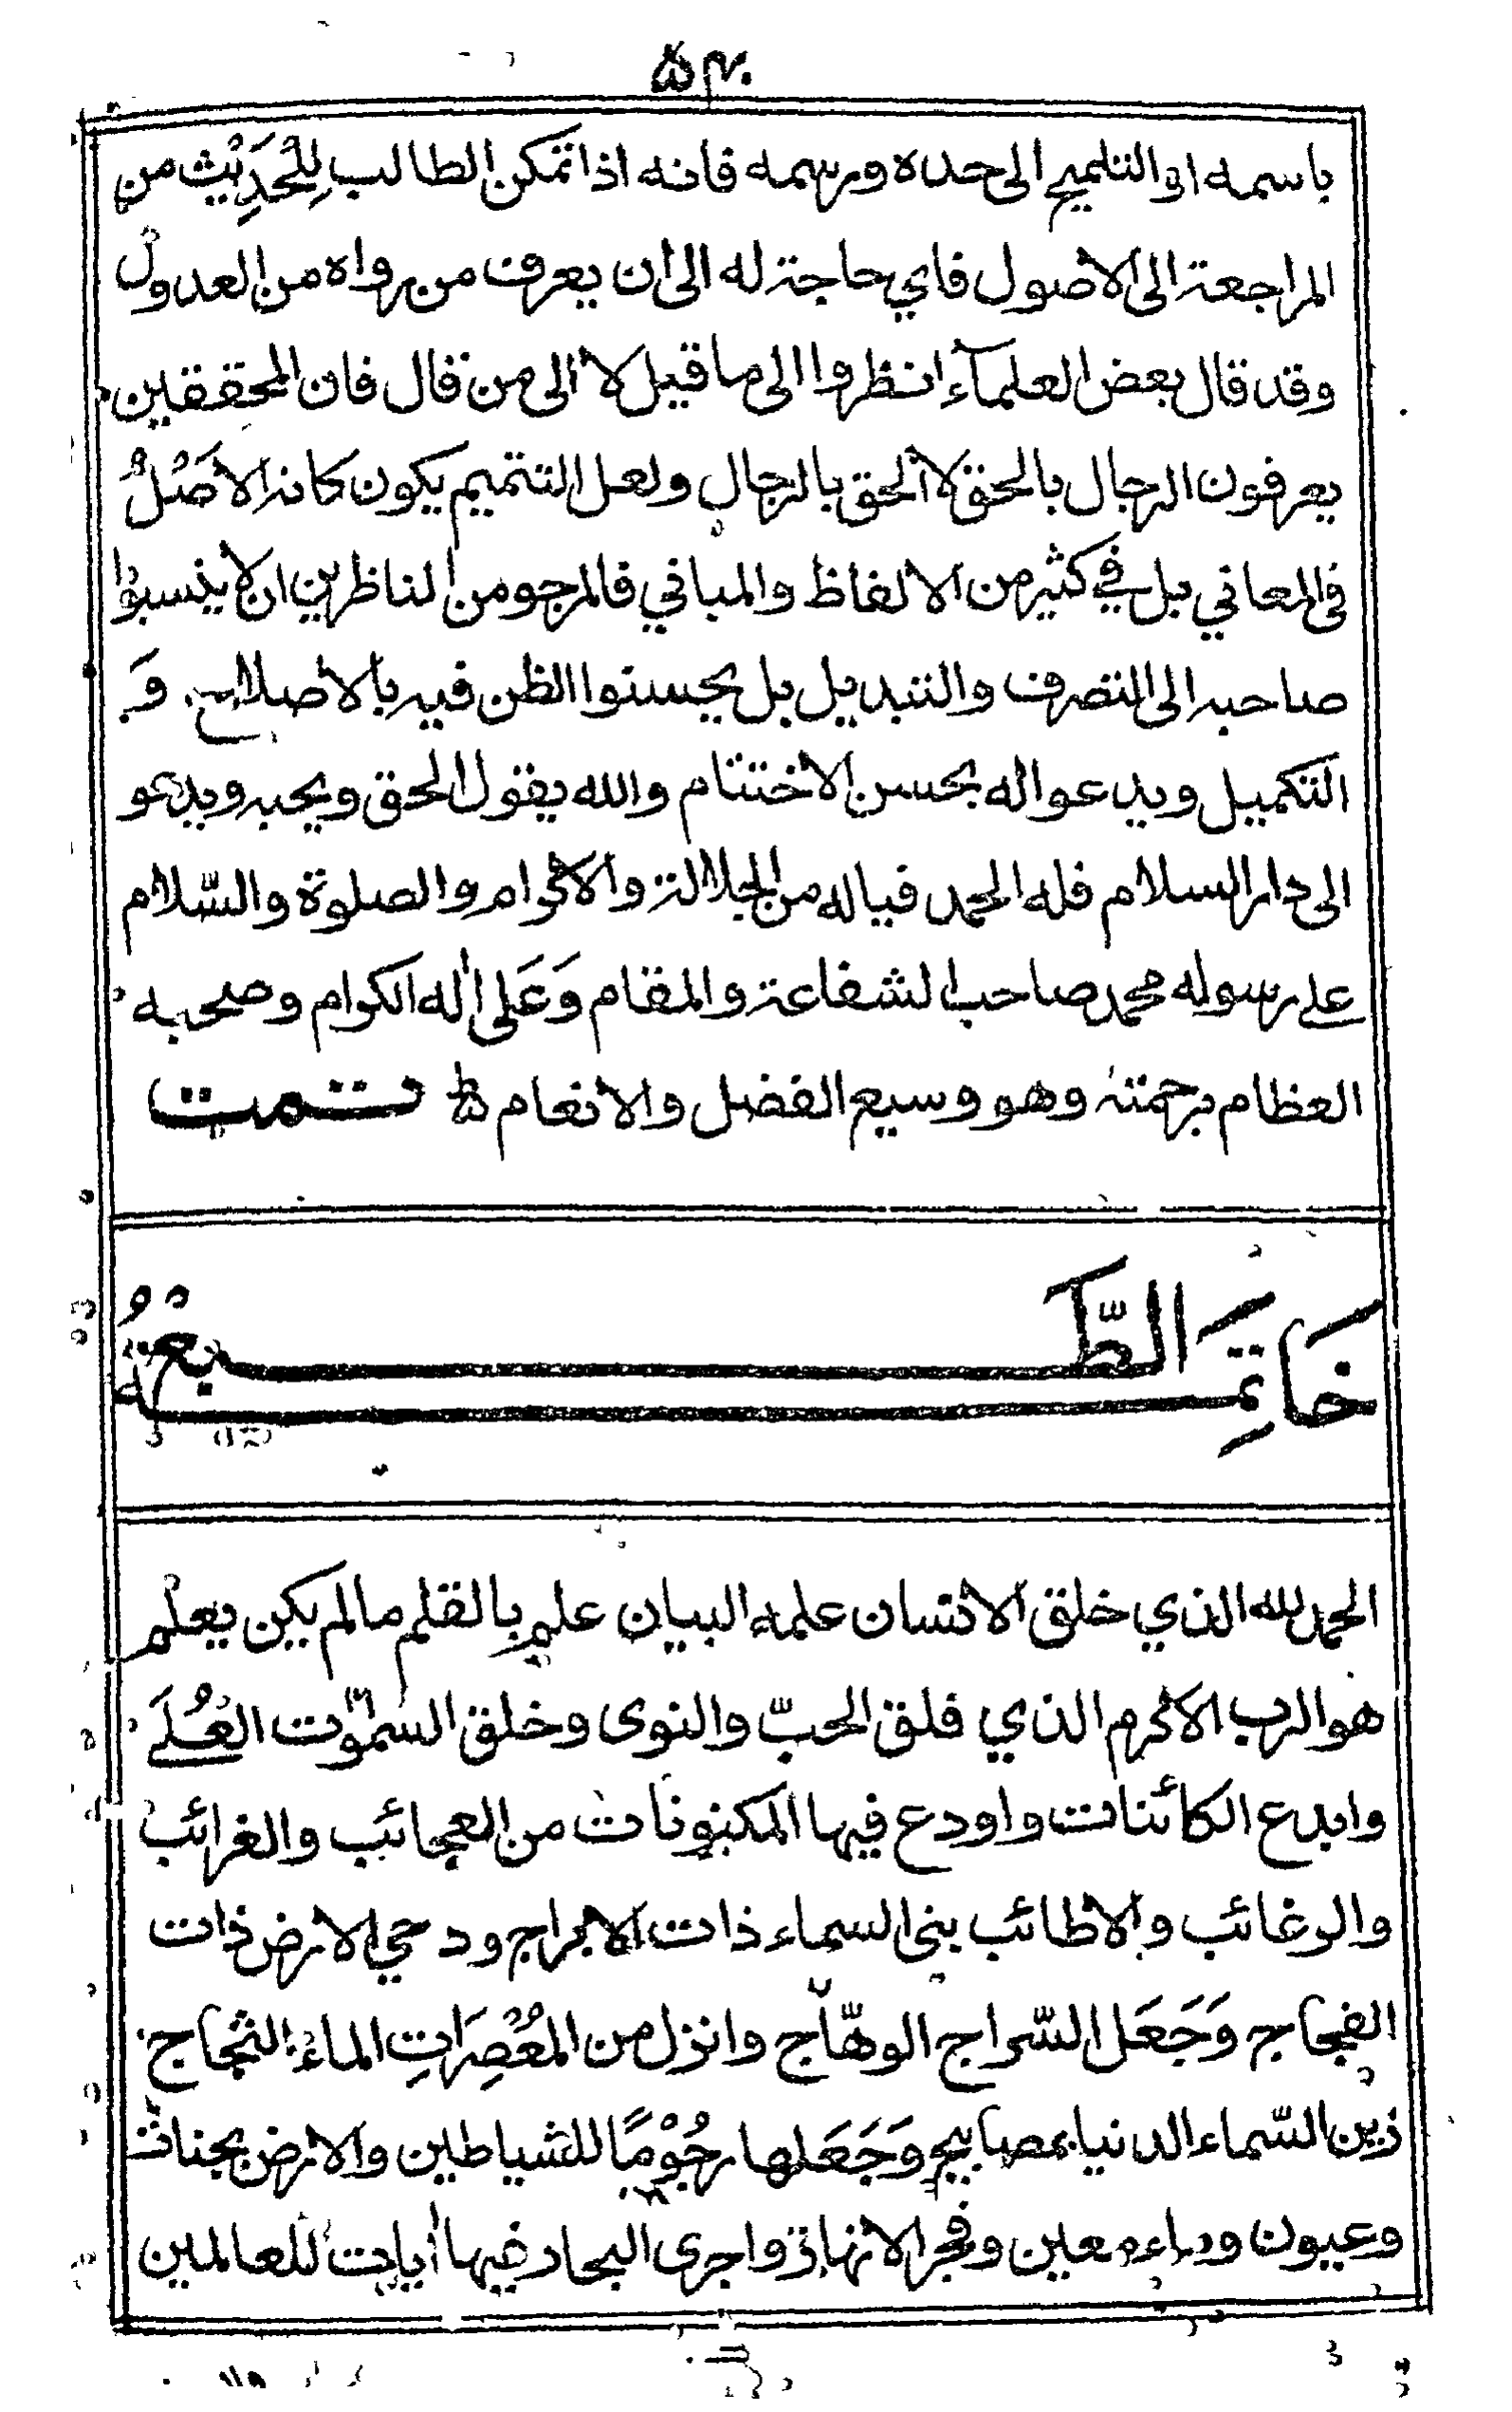 باسمه او التلميح الى حده ورسمه فانه اذا تمكن الطالب لِلْحَدِيْث من
المراجعة الى الاصول فاي حاجة له الى ان يعرف من رواه من العدول
وقد قال بعض العلمآء انظروا الى ما قيل لا الى من قال فان المحققين
يعرفون الرجال بالحق لا الحق بالرجال ولعل التتميم يكون كانه الاَصْلُ
فى المعاني بل في كثير من الالفاظ والمباني فالمرجو من الناظرين ان لا ينسبوا
صاحبه الى التصرف والتبديل بل يحسنوا الظن فيه بالاصلاح وَ
التكميل ويدعوا له بحسن الاختتام والله يقول الحق ويحبه ويدعو
الى دار السلام فله الحمد فياله من الجلالة والاكرام والصلوة والسّلام
على رسوله محمد صاحب الشفاعة والمقام وَعَلى اٰله الكرام وصحبه
العظام برحمته وهو وسيع الفضل والانعام تمت
خَاتِمَة الطَّبْعُ
الحمد لله الذي خلق الانسان علمه البيان علم بالقلم ما لم يكن يعلم
هو الرب الاكرم الذي فلق الحبّ والنوى وخلق السمٰوٰت العُلَى
وابدع الكائنات واودع فيها المكنونات من العجائب والغرائب
والرغائب والاطائب بنى السماء ذات الابراج ودحي الارض ذات
الفجاج وَجَعَل السّراج الوهّاج وانزل من المُعْصِرَاتِ الماءَ الثجاج
زين السّماء الدنيا بمصابيح وَجَعَلها رجُوْمًا للشياطين والارض بجنات
وعيون وماء معين وفجر الانهار واجرى البحار فيها اٰيات للعالمين